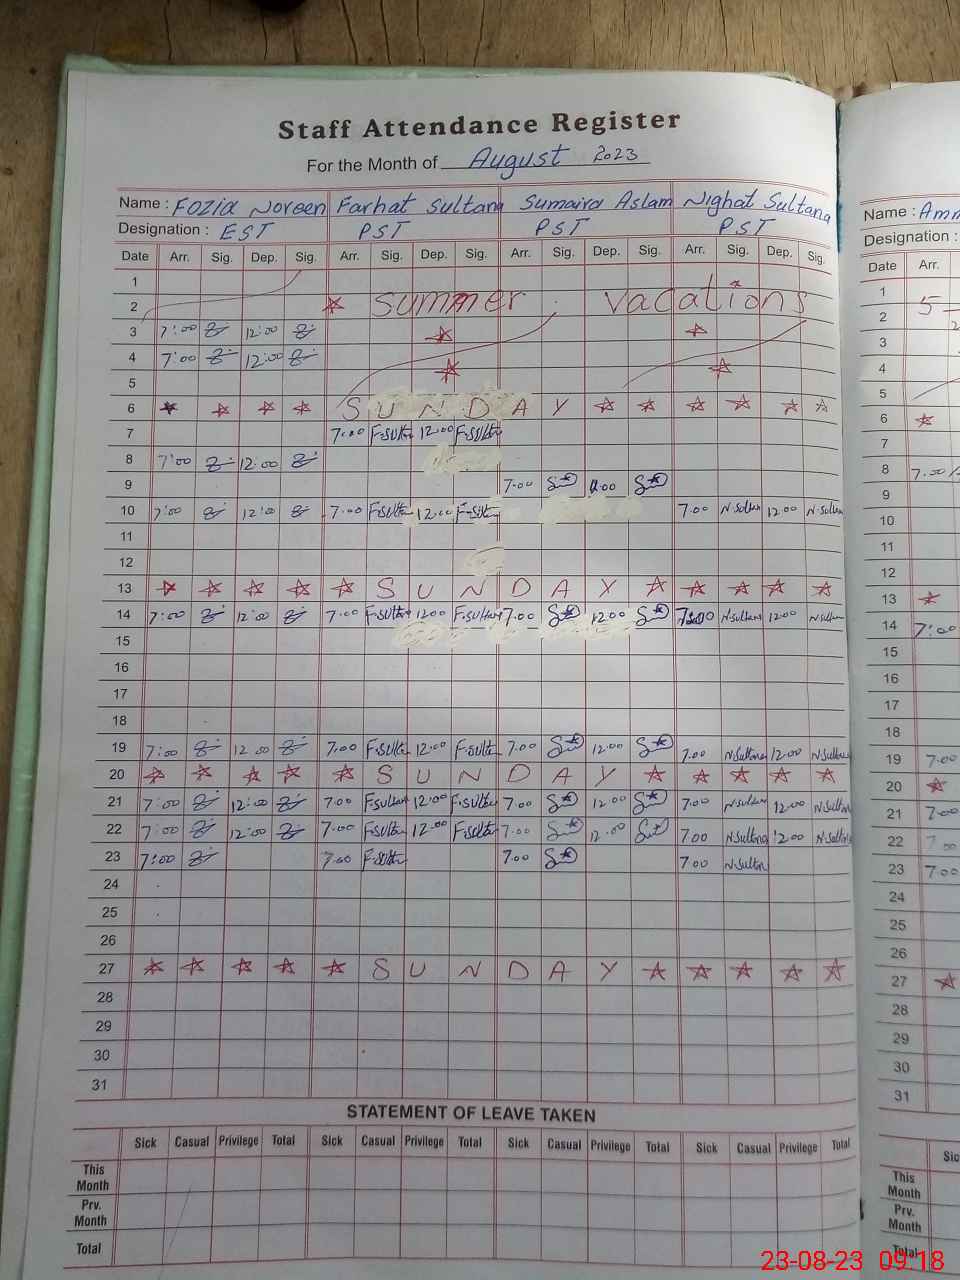 Staff Attendance Register
For the Month of August 2023
Name : Fozia Noreen Farhat Sultana Sumaira Aslam Nighat Sultana
Designation : EST PST PST PST
Date Arr. Sig. Dep. Sig. Arr. Sig. Dep. Sig. Arr. Sig. Dep. Sig. Arr. Sig. Dep. Sig.
1
2 Summer Vacations
3 7:00 12:00
4 7:00 12:00
5
6 SUNDAY
7 7:00 F.Sultan 12:00 F.Sultan
8 7:00 12:00
9 7.00
10 7:00 12:00 7.00 F.Sultan 12:00 F.Sultan 7.00 N.Sultana 12.00 N.Sultana
11
12
13 SUNDAY
14 7:00 12:00 7.00 F.Sultan 12:00 F.Sultan 7.00 12.00 N.Sultana 12.00 N.Sultana
15
16
17
18
19 7:00 12:00 7.00 F.Sultan 12:00 F.Sultan 7.00 12.00 7.00 N.Sultana 12.00 N.Sultana
20 SUNDAY
21 7:00 12:00 7.00 F.Sultan 12:00 F.Sultan 7.00 12.00 7.00 N.Sultan 12.00 N.Sultana
22 7:00 12:00 7.00 F.Sultan 12:00 F.Sultan 7.00 12.00 7.00 N.Sultana 12.00 N.Sultana
23 7:00 7.00 F.Sultan 7.00 7.00 N.Sultan
24
25
26
27 SUNDAY
28
29
30
31
STATEMENT OF LEAVE TAKEN
Sick Casual Privilege Total Sick Casual Privilege Total Sick Casual Privilege Total Sick Casual Privilege Total
This Month
Prv. Month
Total
Name : Amm
Designation :
Date Arr.
1
2 5
3
4
5
6
7
8 7.00
9
10
11
12
13
14 7:00
15
16
17
18
19 7.00
20
21 7.00
22 7.00
23 7.00
24
25
26
27
28
29
30
31
Sic
This Month
Prv. Month
Total
23-08-23 09:18